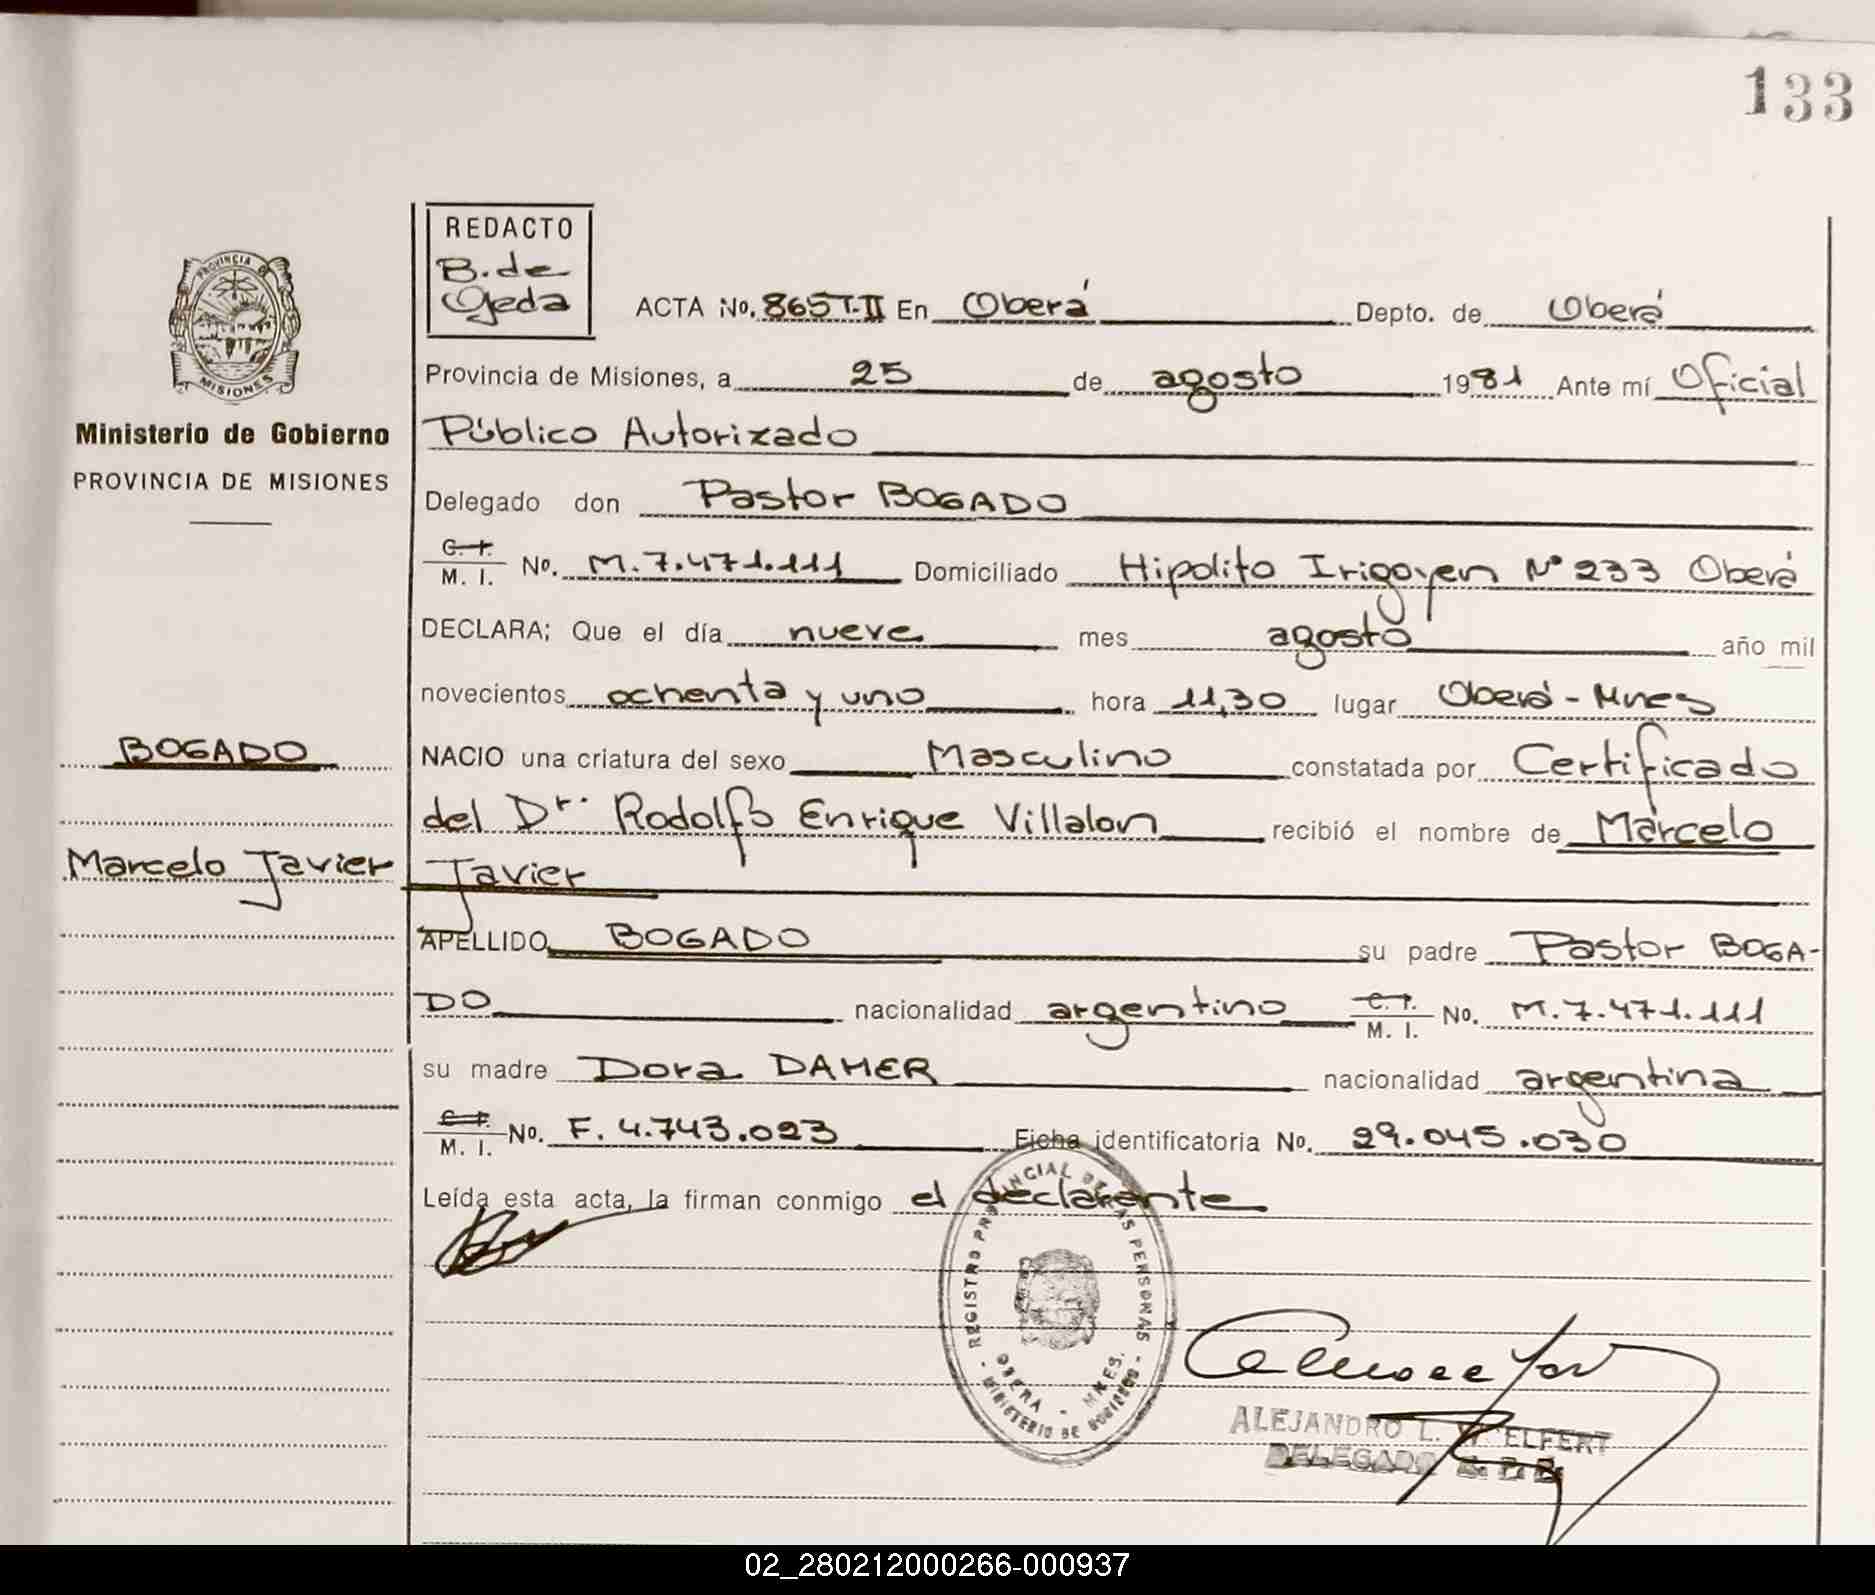 133
REDACTO
B. de
Ojeda
PROVINCIA DE
MISIONES
ACTA No. 865 T.II En Oberá Depto. de Oberá
Provincia de Misiones, a 25 de agosto 1981 Ante mí Oficial
Ministerio de Gobierno
Público Autorizado
PROVINCIA DE MISIONES
Delegado don Pastor BOGADO
C. I.
M. I. No. M. 7.471.111 Domiciliado Hipolito Irigoyen N° 233 Oberá
DECLARA; Que el día nueve mes agosto año mil
novecientos ochenta y uno hora 11,30 lugar Oberá - Mnes
BOGADO
NACIO una criatura del sexo Masculino constatada por Certificado
del Dr. Rodolfo Enrique Villalon recibió el nombre de Marcelo
Marcelo Javier
Javier
APELLIDO BOGADO su padre Pastor BOGA-
DO nacionalidad argentino C. I. M. I. No. M. 7.471.111
su madre Dora DAMER nacionalidad argentina
C. I.
M. I. No. F. 4.743.023 Ficha identificatoria No. 29.045.030
Leída esta acta, la firman conmigo el declarante
- REGISTRO PROVINCIAL DE LAS PERSONAS -
OBERA - MNES.
MINISTERIO DE GOBIERNO
ALEJANDRO L. WELFERT
DELEGADO
02_280212000266-000937